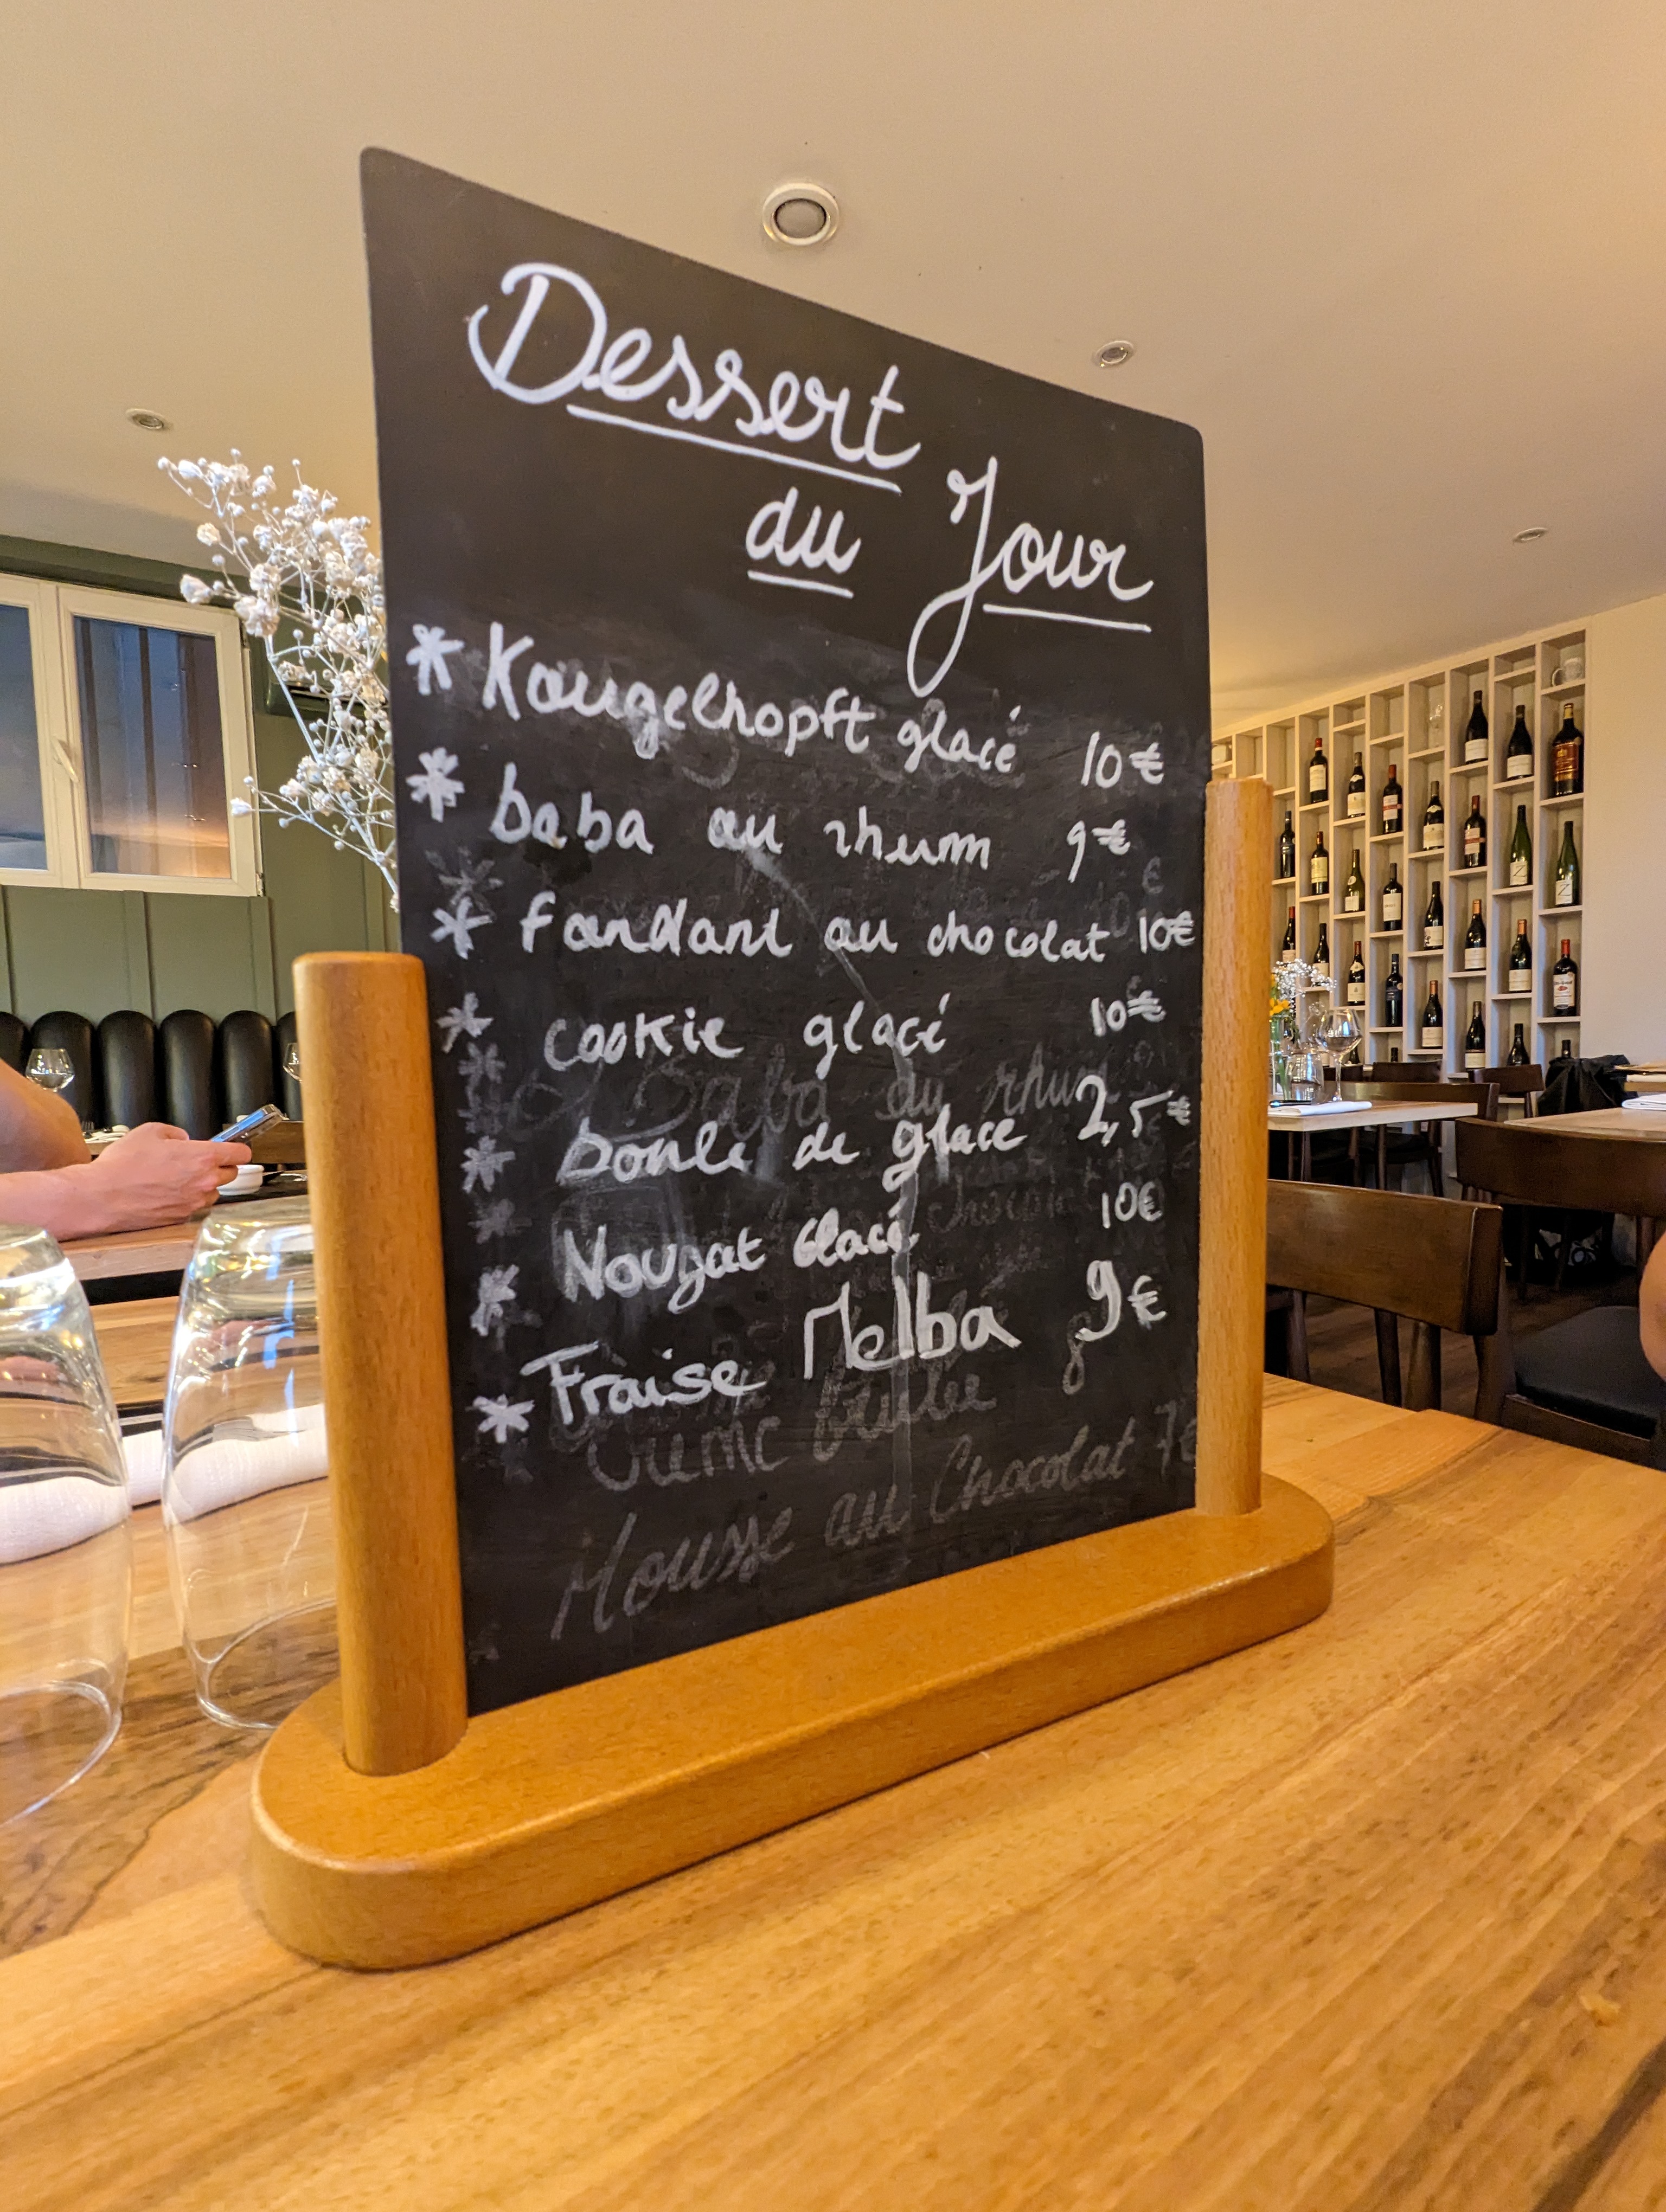 Dessert
du Jour
* Kougelhopft glacé 10€
* baba au rhum 9€
* fondant au chocolat 10€
* cookie glacé 10€
* boule de glace 2,5€
* Nougat Glacé 10€
* Fraise Melba 9€
Creme brulee 8
Mousse au Chocolat 7€